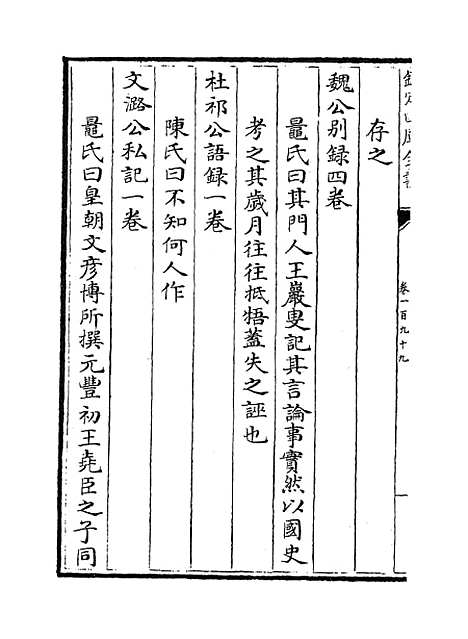 欽定四庫全書
卷一百九十九
存之
魏公别録四卷
鼂氏曰其門人王巖叟記其言論事實然以國史
考之其歲月往往抵牾蓋失之誣也
杜祁公語録一卷
陳氏曰不知何人作
文潞公私記一卷
鼂氏曰皇朝文彦博所撰元豐初王堯臣之子同